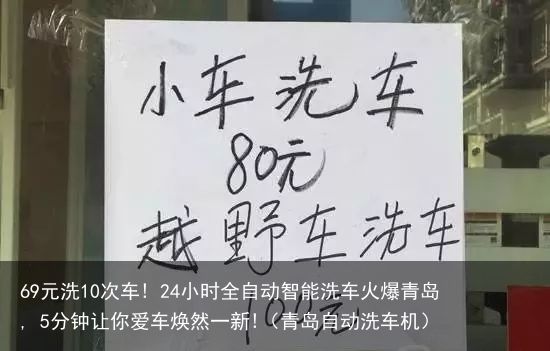 小车洗车
80元
越野车洗车
100元
69元洗10次车！24小时全自动智能洗车火爆青岛
，5分钟让你爱车焕然一新！（青岛自动洗车机）